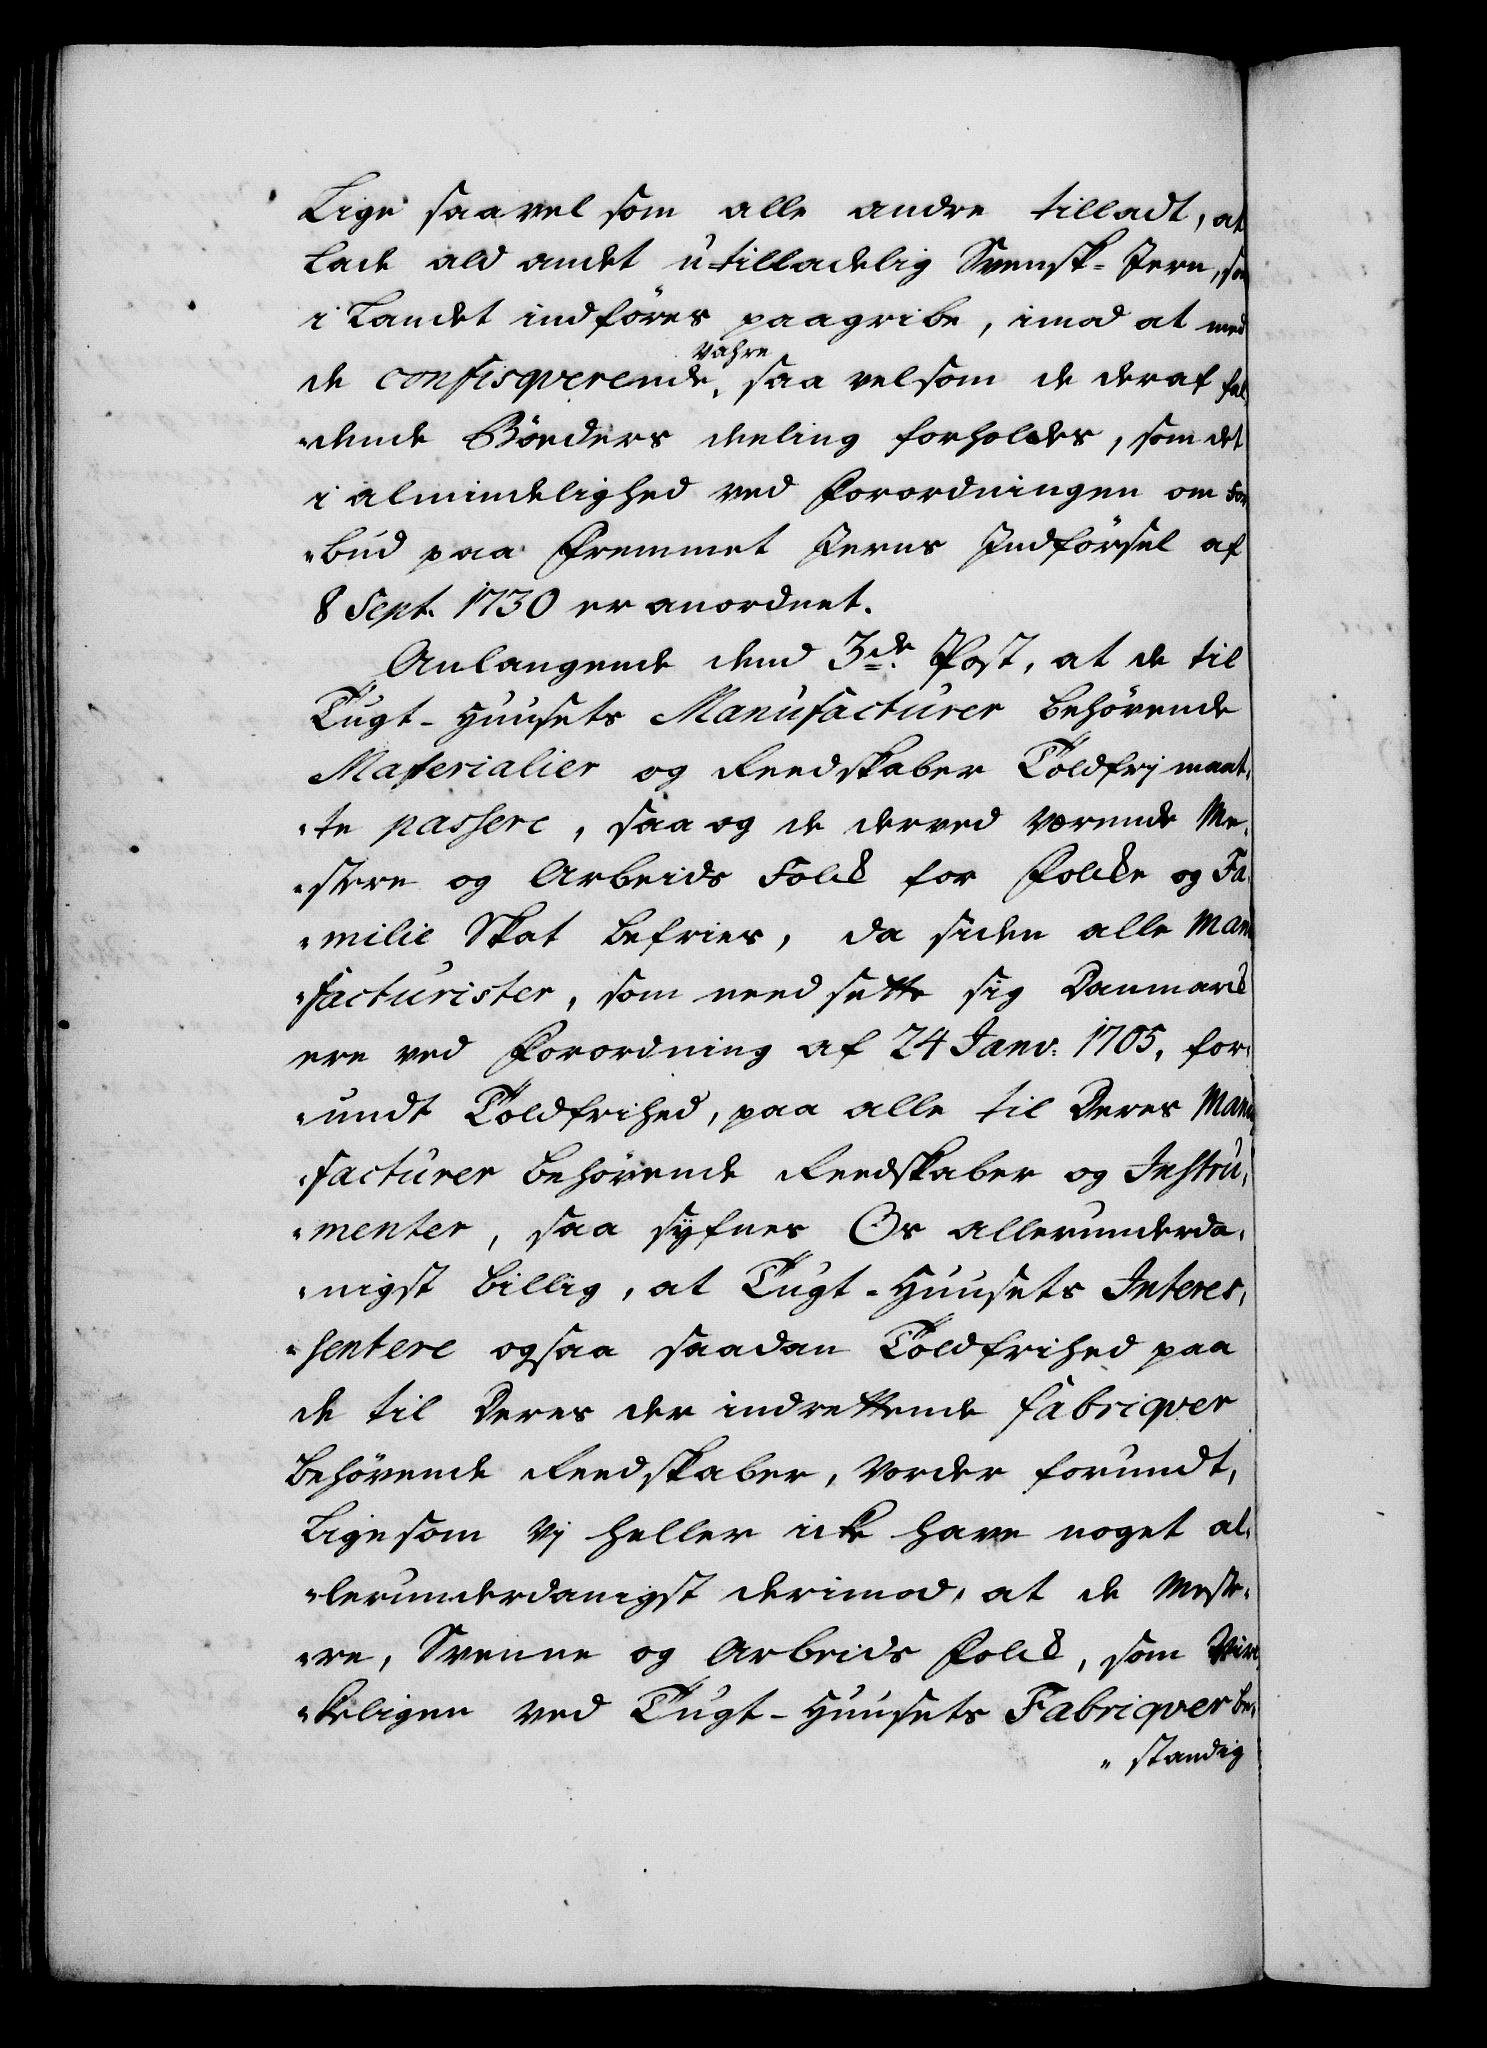 Lige saavel som alle andre tilladt, at
Lade ald andet utilladelig Svensk-Jern, som
i Landet indføres paagribe, imod at med
de confisqverende Vahre, saa velsom de deraf fal-
„dende Bøeders deeling forholdes, som det
i almindelighed ved Forordningen om For-
„bud paa Fremmet Jerns Indførsel af
8 Sept. 1730 er anordnet.
Anlangende dend 3de Post, at de til
Tugt-Huusets Manufacturer behørende
Materialier og Reedskaber Toldfrj maat-
„te passere, saa og de derved værende Me-
„stere og Arbeids Folck for Folcke og Fa-
„milie Skat befries, da siden alle Manu
„facturister, som need sette sig Danmarck
ere ved Forordning af 24 Janv: 1705, for-
„undt Toldfrihed, paa alle til Deres Manu
„facturer behørende Reedskaber og Instru-
„menter, saa syfnes Os allerunderda-
„nigst billig, at Tugt-Huusets Interes-
„sentere ogsaa saadan Toldfrihed paa
de til Deres der indrettende fabriqver
behørende Reedskaber, vorder forundt,
Ligesom Vj heller icke have noget al-
„lerunderdanigst derimod, at de Meste-
„re, Svenne og Arbeids Folck, som Vir-
„keligen ved Tugt-Huusets Fabriqver be-
„standig